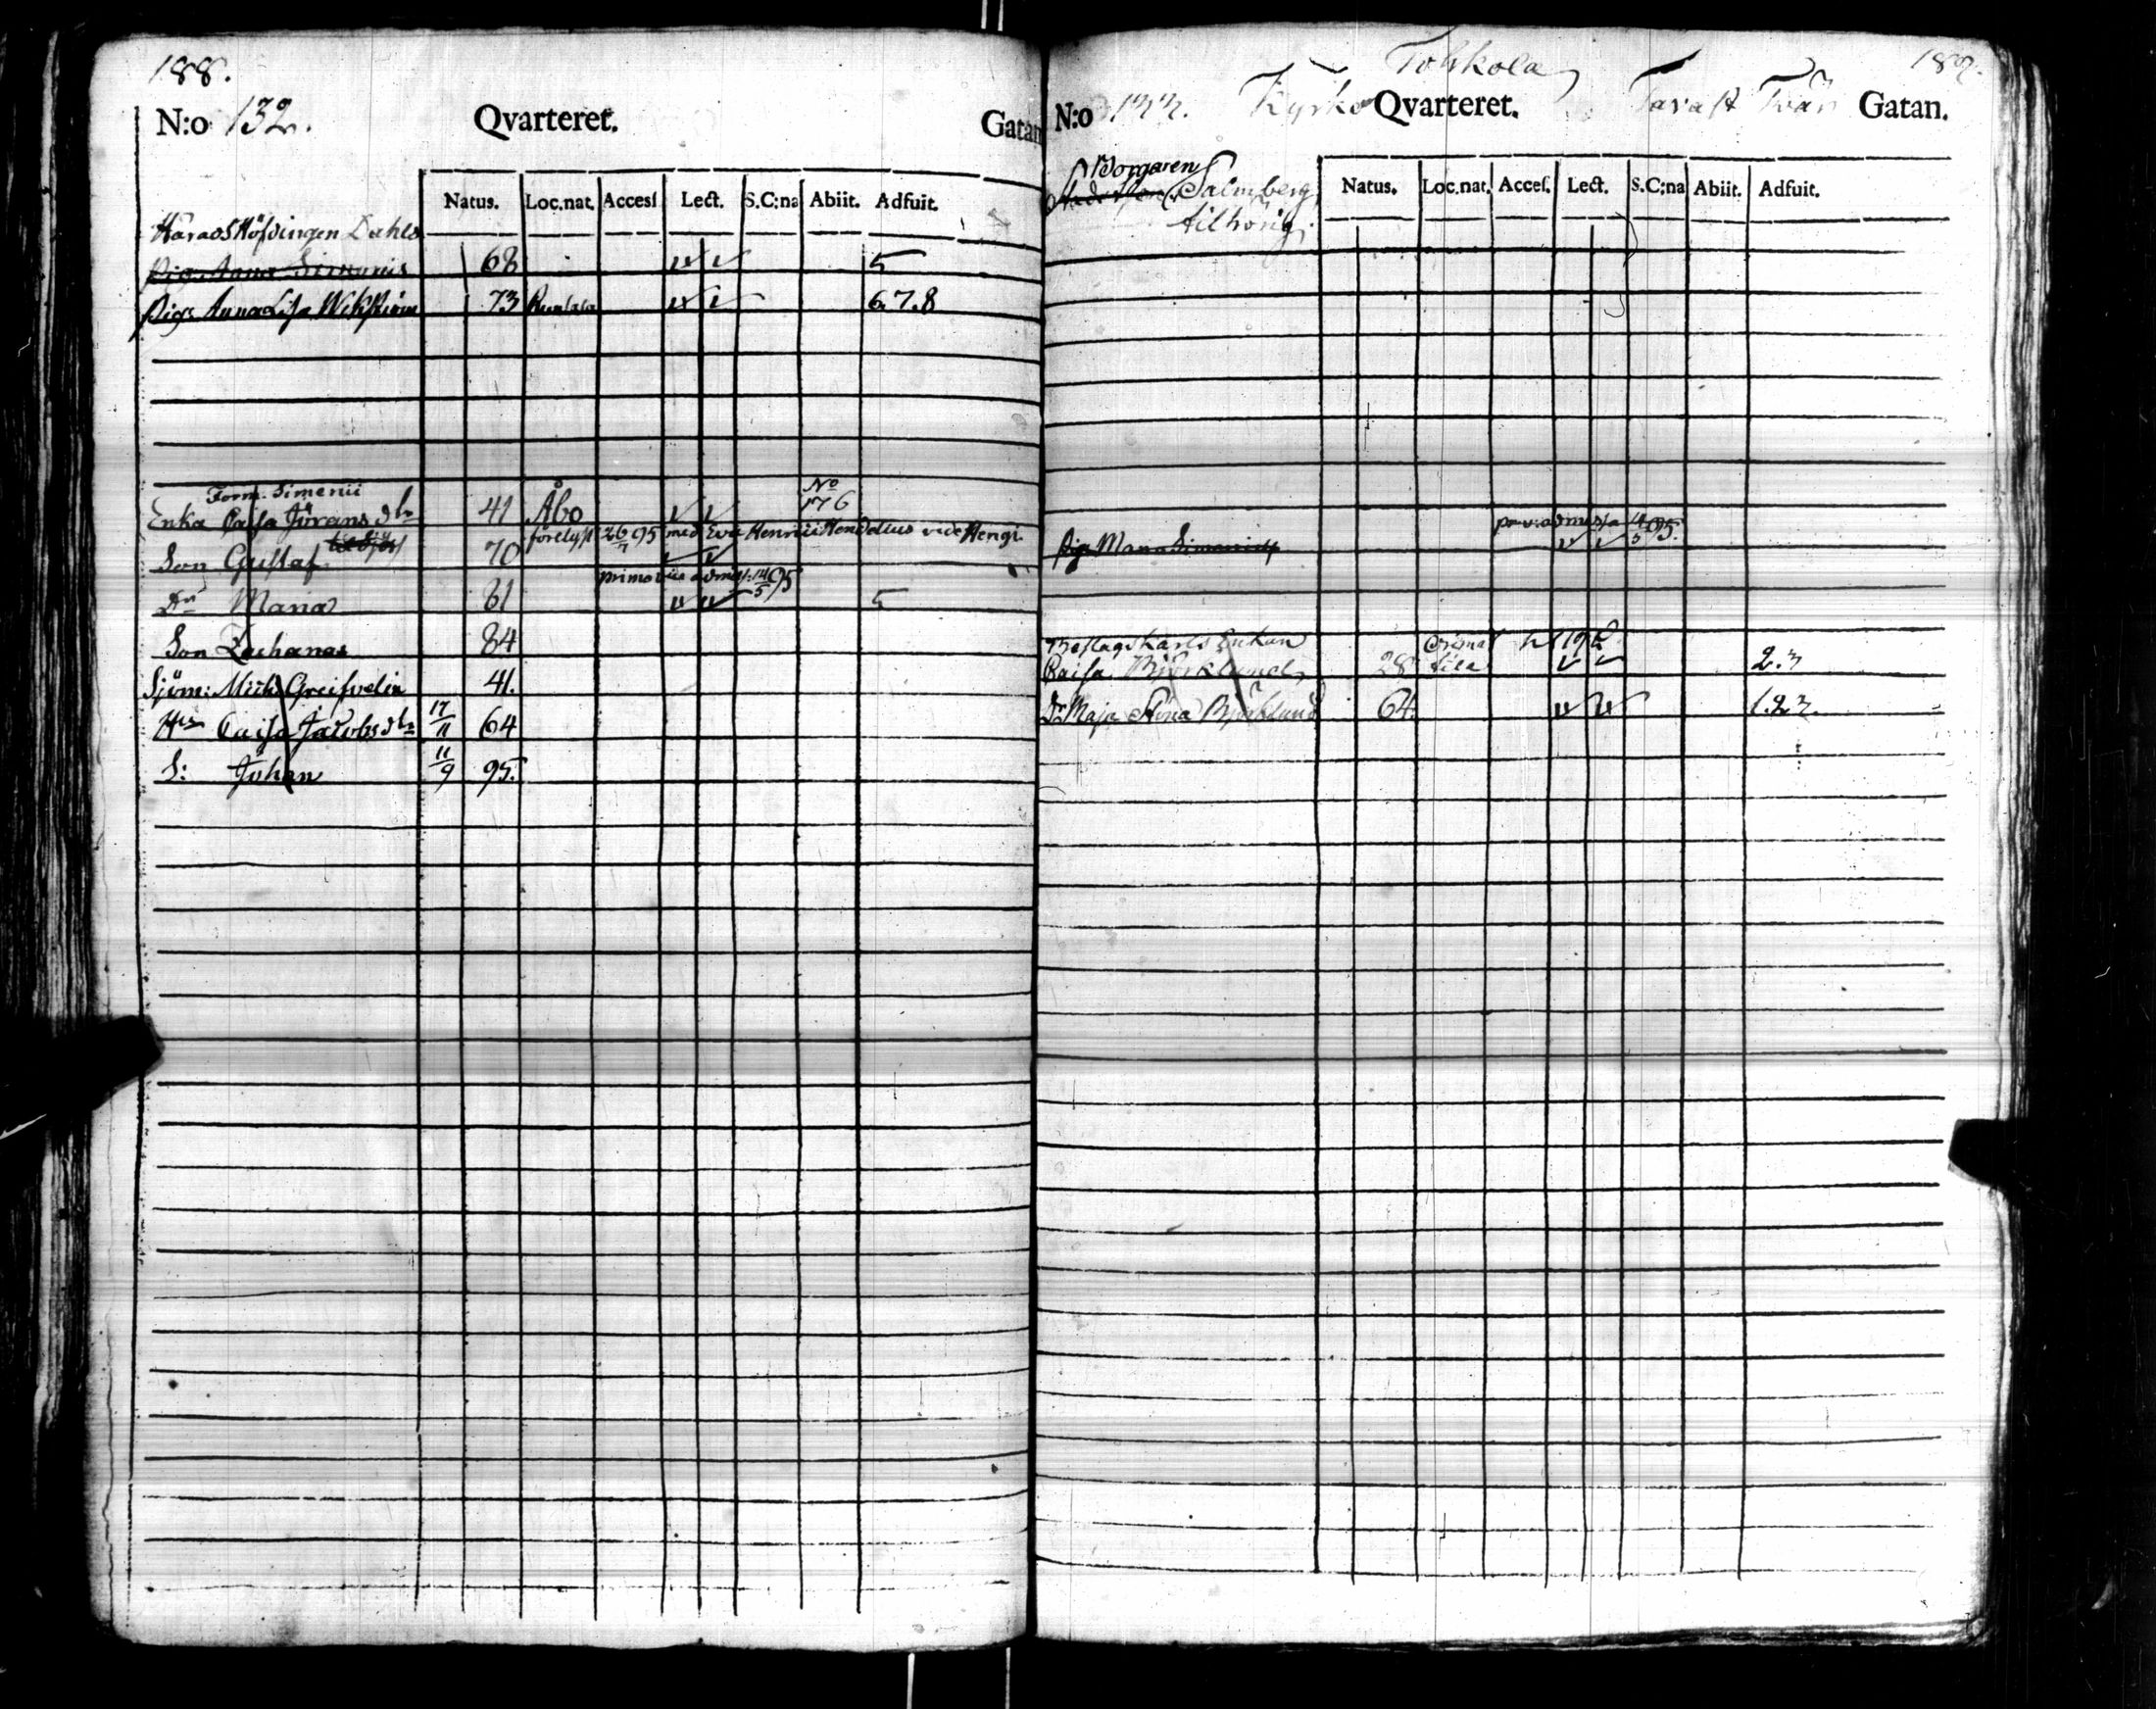 188.
N:o 132. Qvarteret. Gatan
Natus. Loc.nat. Accesf. Lect. S.C:na Abiit. Adfuit.
Häradshöfdingen Dahls
Pig. Anna Simonis 68 5
Pig. Anna Lisa Wikström 73 6.7.8
Form. Simenii No
Enka Caisa Jörans dr 41 Åbo 176
förelyst 26/7 95 med Eva Henrici Hendelius vide Hengi.
Son Gustaf til Sjös 70
primo vice admiss. 14/5 95
Dr Maria 81 5
Son Zacharias 84
Sjöm: Mich Greifvelin 41.
Hu Caisa Jacobs dr 17/11 64
S: Johan 11/9 95.
189.
Tobskola
N:o 133. Kyrko Qvarteret. Tavast Tvär Gatan.
Natus. Loc.nat. Accef. Lect. S.C:na Abiit. Adfuit.
Borgaren
Salmberg
tilhörig
pr. v. admissa 14/5 95.
Pig. Maria Simonis
Beslagskarls Enkan
Caisa Björklund 28 2.3
Dr Maja Stina Björklund 64. 1.2 3.